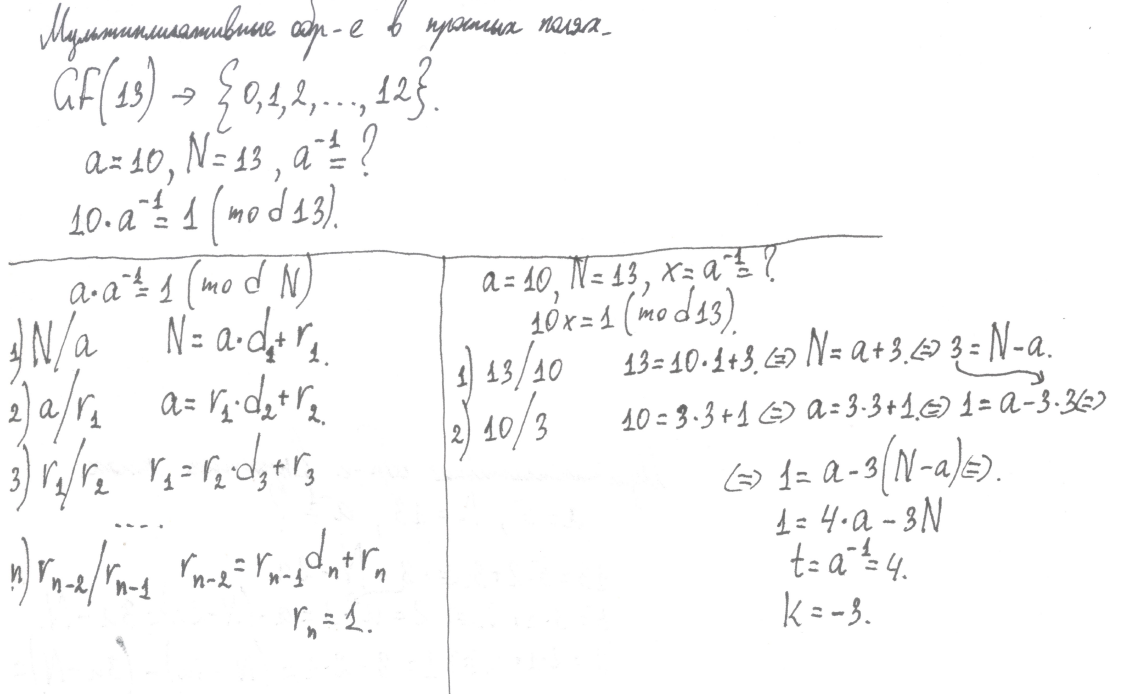 Мультипликативные обр-е в простых полях.
GF(13) → {0,1,2,...,12}.
a=10, N=13, a⁻¹=?
10·a⁻¹=1 (mod 13).
a·a⁻¹=1 (mod N)
1) N/a N=a·d₁+r₁.
2) a/r₁ a=r₁·d₂+r₂.
3) r₁/r₂ r₁=r₂·d₃+r₃
....
n) rₙ₋₂/rₙ₋₁ rₙ₋₂=rₙ₋₁dₙ+rₙ
rₙ=1.
a=10, N=13, x=a⁻¹=?
10x=1 (mod 13).
1) 13/10 13=10·1+3.⇔ N=a+3.⇔ 3=N-a.
2) 10/3 10=3·3+1 ⇔ a=3·3+1.⇔ 1=a-3·3⇔
⇔ 1=a-3(N-a)⇔.
1=4·a-3N
t=a⁻¹=4.
k=-3.